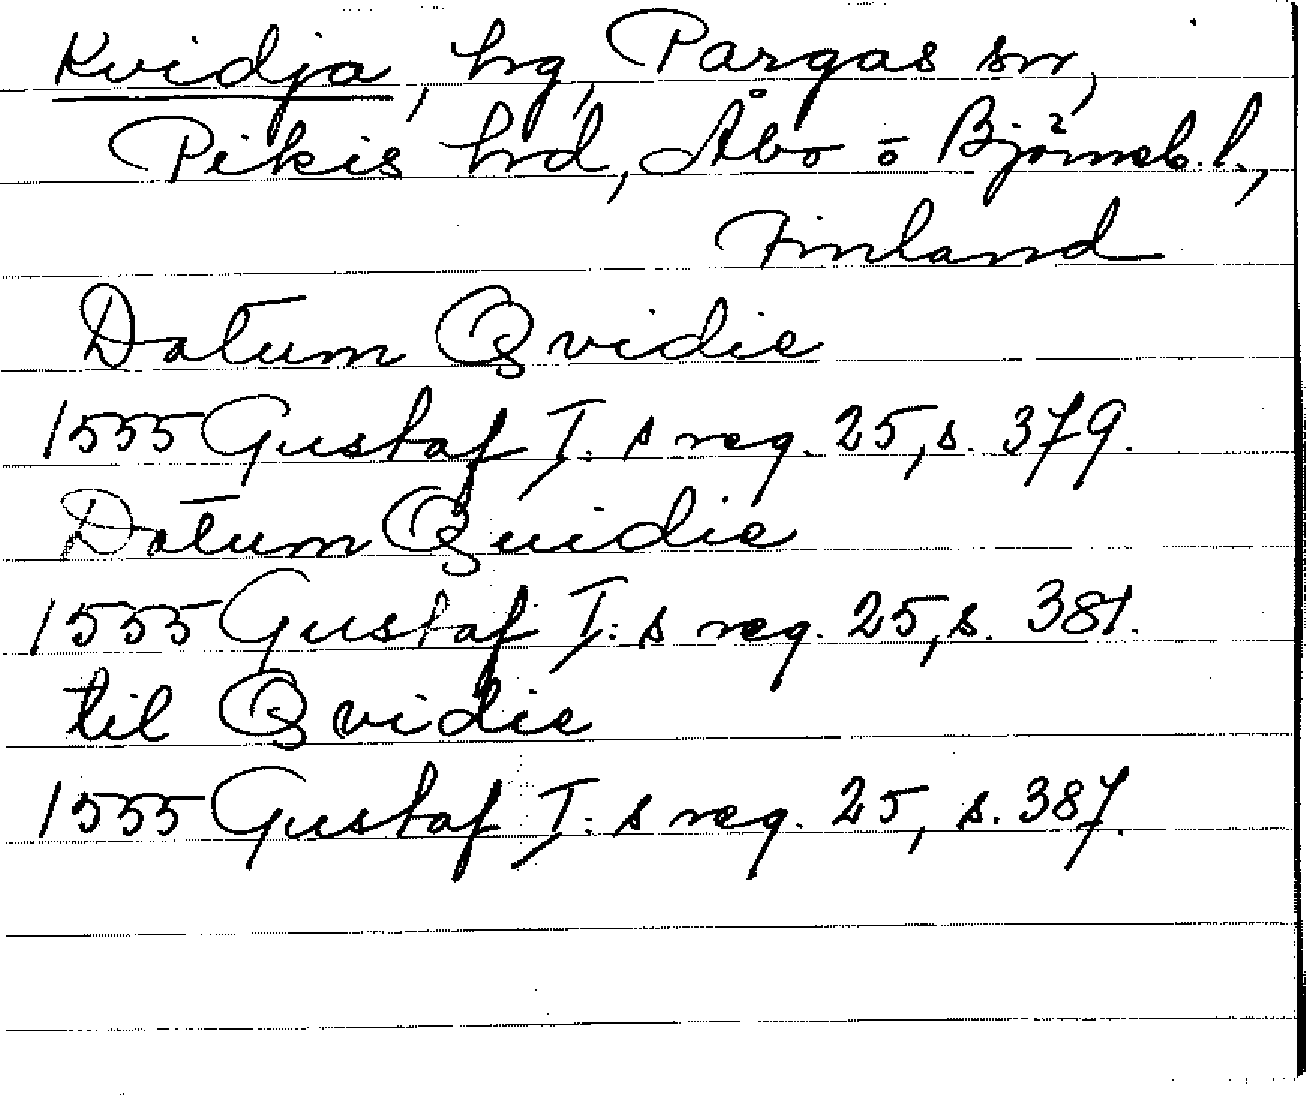 Kvidja, hg, Pargas sn,
Pikis hrd, Åbo o Björneb. l.,
Finland
Datum Qvidie
1555 Gustaf I:s reg. 25, s. 379.
Datum Quidie
1555 Gustaf I:s reg. 25, s. 381.
til Qvidie
1555 Gustaf I:s reg. 25, s. 387.